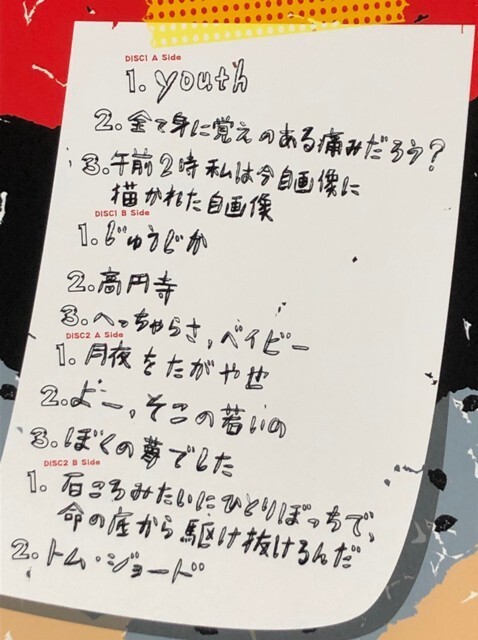 DISC1 A Side
1. youth
2. 全て身に覚えのある痛みだろう?
3. 午前2時私は今自画像に
描かれた自画像
DISC1 B Side
1. じゅうじか
2. 高円寺
3. へっちゃらさ、ベイビー
DISC2 A Side
1. 月夜をたがやせ
2. よー、そこの若いの
3. ぼくの夢でした
DISC2 B Side
1. 石ころみたいにひとりぼっちで、
命の底から駆け抜けるんだ
2. トム・ジョード